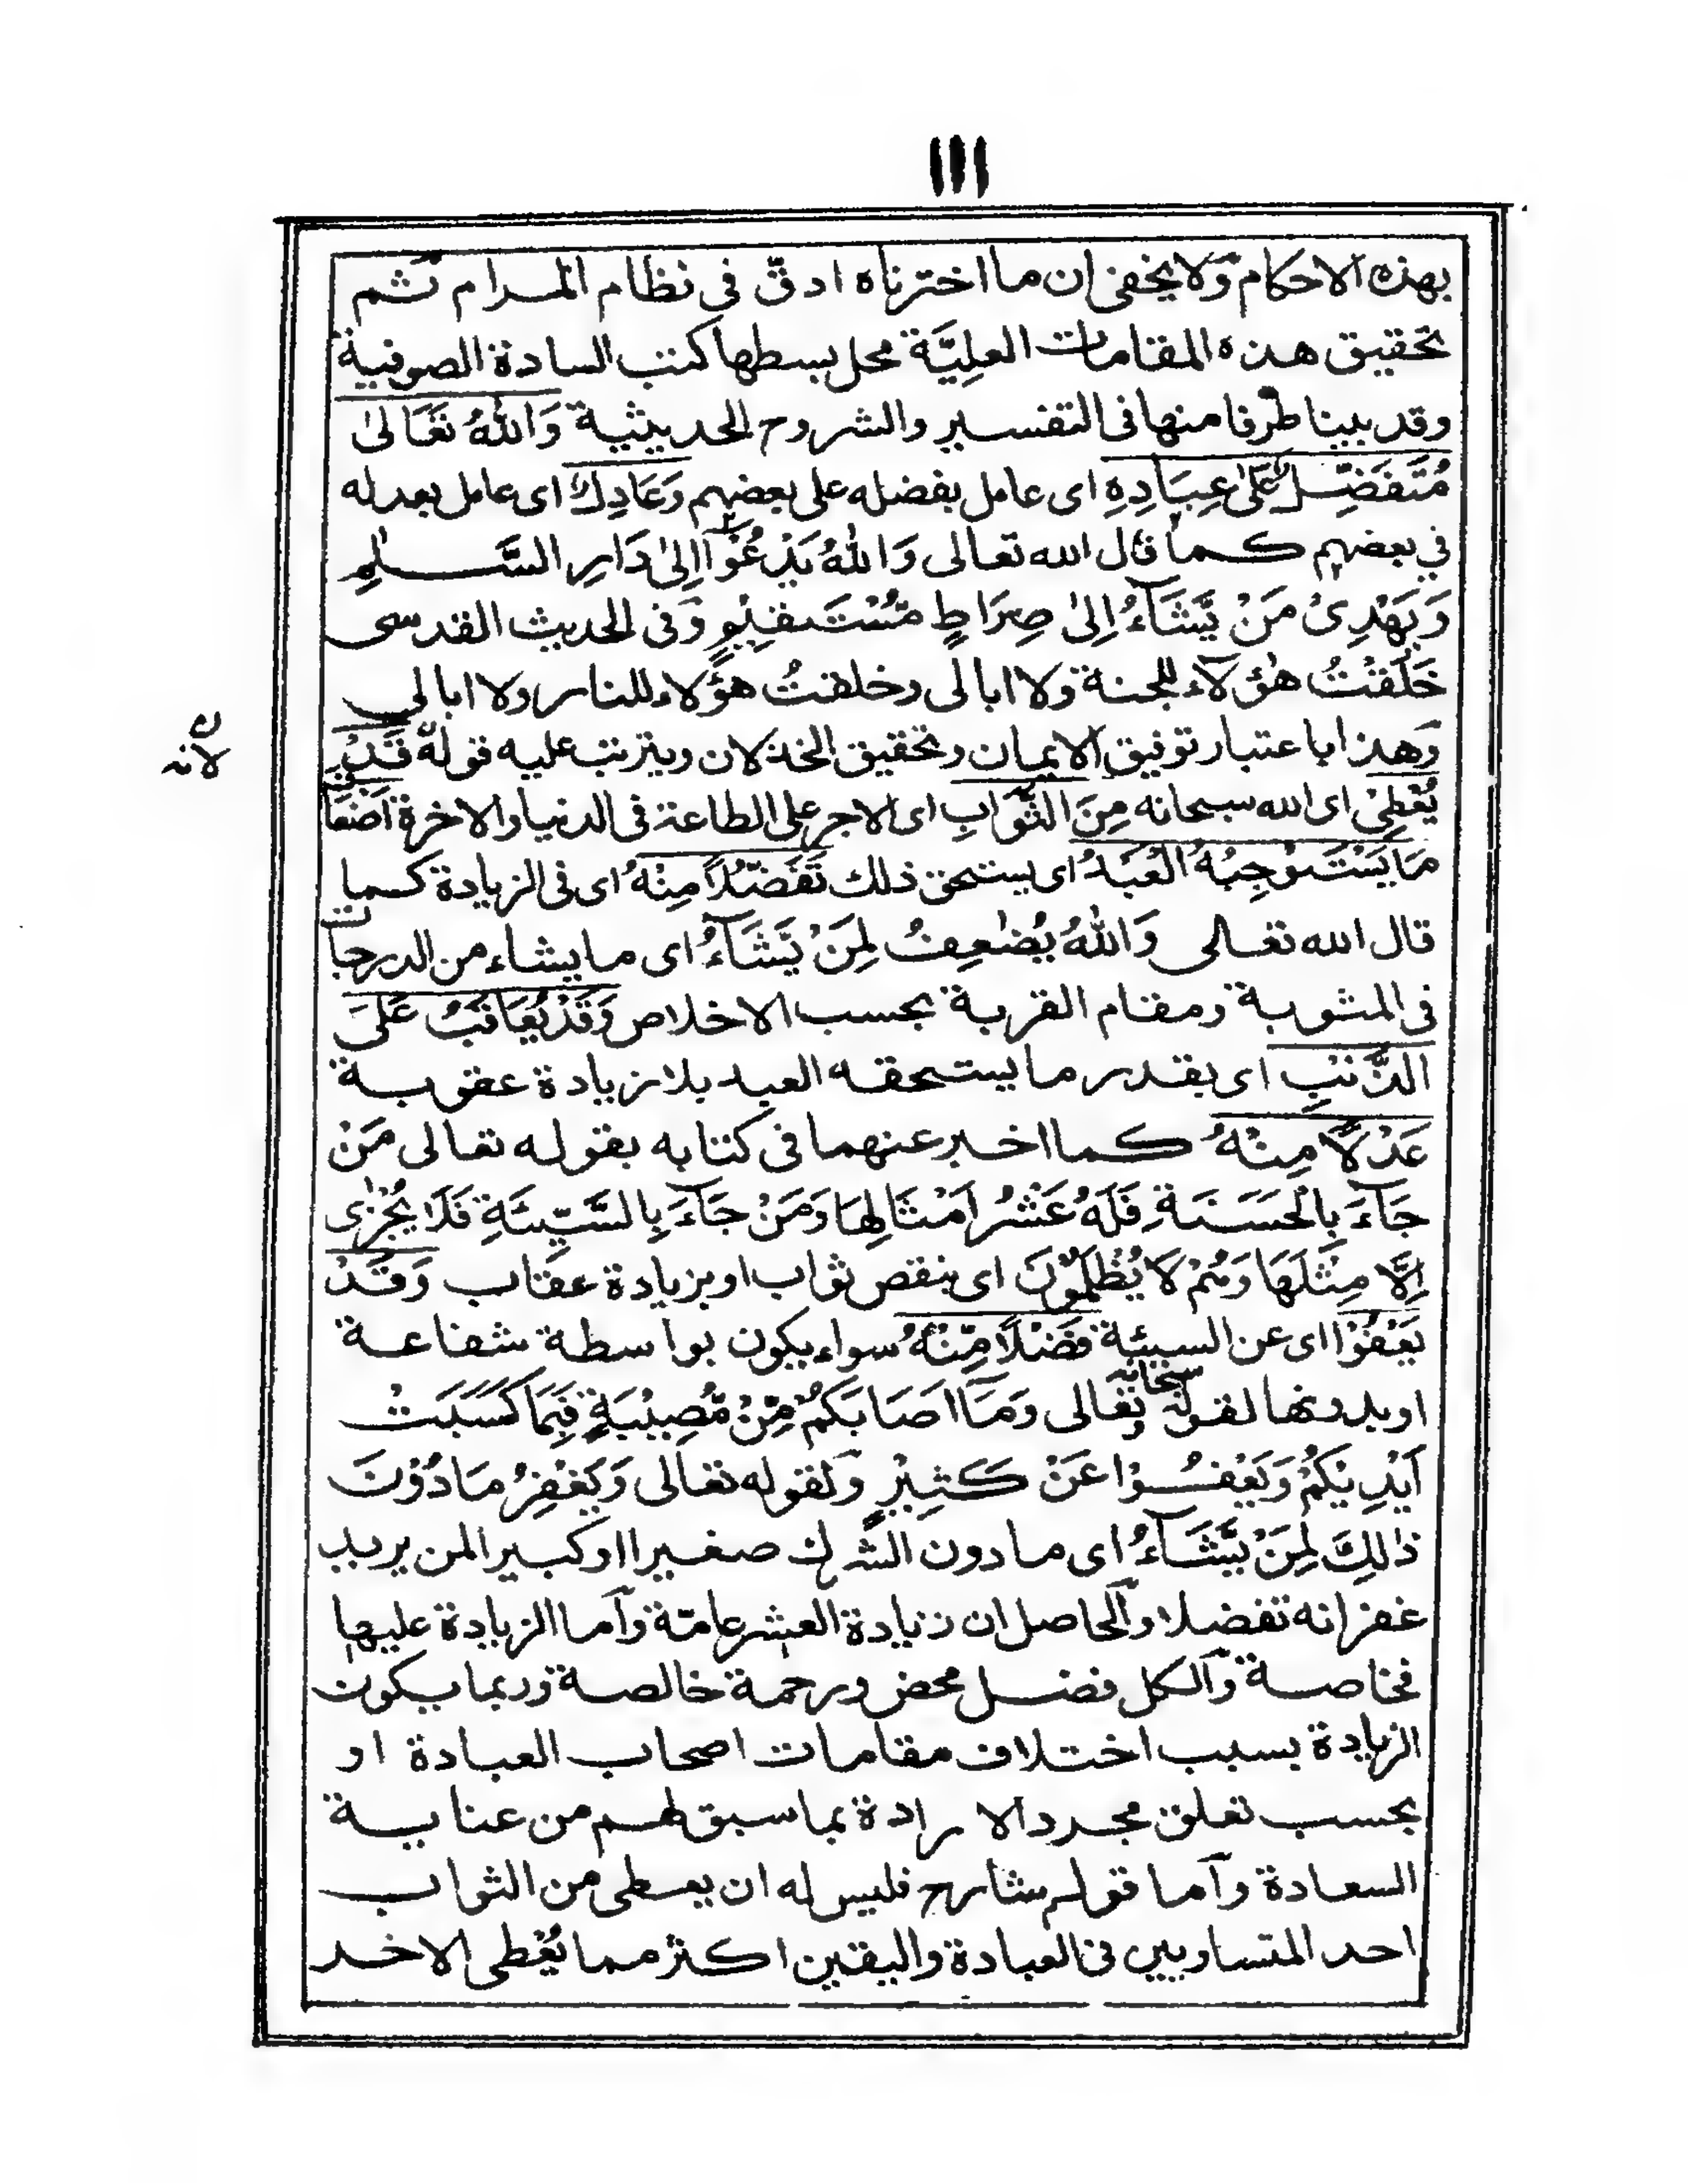 ١١١
بهذه الاحكام ولا يخفى ان ما اخترناه ادق في نظام المرام ثم
تحقيق هذه المقامات العليَّة محل بسطها كتب السادة الصوفية
وقد بينا طرفا منها فى التفسير والشروح الحديثية وَاللّٰهُ تَعَالىٰ
مُتَفَضِّلٌ عَلىٰ عِبَادِهٖ اى عامل بفضله على بعضهم وَعَادِلٌ اى عامل بعدله
في بعضهم كما قال الله تعالى وَاللّٰهُ يَدْعُوْٓا اِلىٰ دَارِ السَّلٰمِ
وَيَهْدِىْ مَنْ يَّشَآءُ اِلىٰ صِرَاطٍ مُّسْتَقِيْمٍ وفى الحديث القدسى
خَلَقْتُ هٰؤلآء للجنة ولا ابالى وخلقتُ هؤلاء للنار ولا ابالي
وهذا باعتبار توفيق الايمان وتحقيق الخذلان ويترتب عليه قوله قَدْ
لانه
يُعْطِىْ اى الله سبحانه مِنَ الثَّوَابِ اى الاجر على الطاعة فى الدنيا والاخرة اَضْعَافَ
مَا يَسْتَوْجِبُهُ الْعَبْدُ اى يستحق ذلك تَفَضُّلًا مِنْهُ اى فى الزيادة كما
قال الله تعالى وَاللّٰهُ يُضٰعِفُ لِمَنْ يَّشَآءُ اى ما يشاء من الدرجات
فى المثوبة ومقام القربة بحسب الاخلاص وَقَدْ يُعَاقَبُ عَلَى
الذَّنْبِ اى بقدر ما يستحقه العبد بلا زيادة عقوبة
عَدْلًا مِنْهُ كما اخبر عنهما فى كتابه بقوله تعالى مَنْ
جَآءَ بِالْحَسَنَةِ فَلَهُ عَشْرُ اَمْثَالِهَا وَمَنْ جَآءَ بِالسَّيِّئَةِ فَلَا يُجْزٰى
اِلَّا مِثْلَهَا وَهُمْ لَا يُظْلَمُوْنَ اى بنقص ثواب او بزيادة عقاب وَقَدْ
يَعْفُوْا اى عن السيئة فَضْلًا مِّنْهُ سواء يكون بواسطة شفاعة
او بدونها لقوله سبحانه وتعالى وَمَآ اَصَابَكُمْ مِّنْ مُّصِيْبَةٍ فَبِمَا كَسَبَتْ
اَيْدِيْكُمْ وَيَعْفُوْا عَنْ كَثِيْرٍ ولقوله تعالى وَيَغْفِرُ مَا دُوْنَ
ذٰلِكَ لِمَنْ يَّشَآءُ اى ما دون الشرك صغيرا او كبيرا لمن يريد
غفرانه تفضلا والحاصل ان زيادة العشر عامّة واما الزيادة عليها
فخاصة والكل فضل محض ورحمة خالصة وربما يكون
الزيادة بسبب اختلاف مقامات اصحاب العبادة او
بحسب تعلق مجرد الارادة بما سبق لهم من عناية
السعادة واما قول شارح فليس له ان يعطى من الثواب
احد المتساويين فى العبادة واليقين اكثر مما يُعْطى الاخر